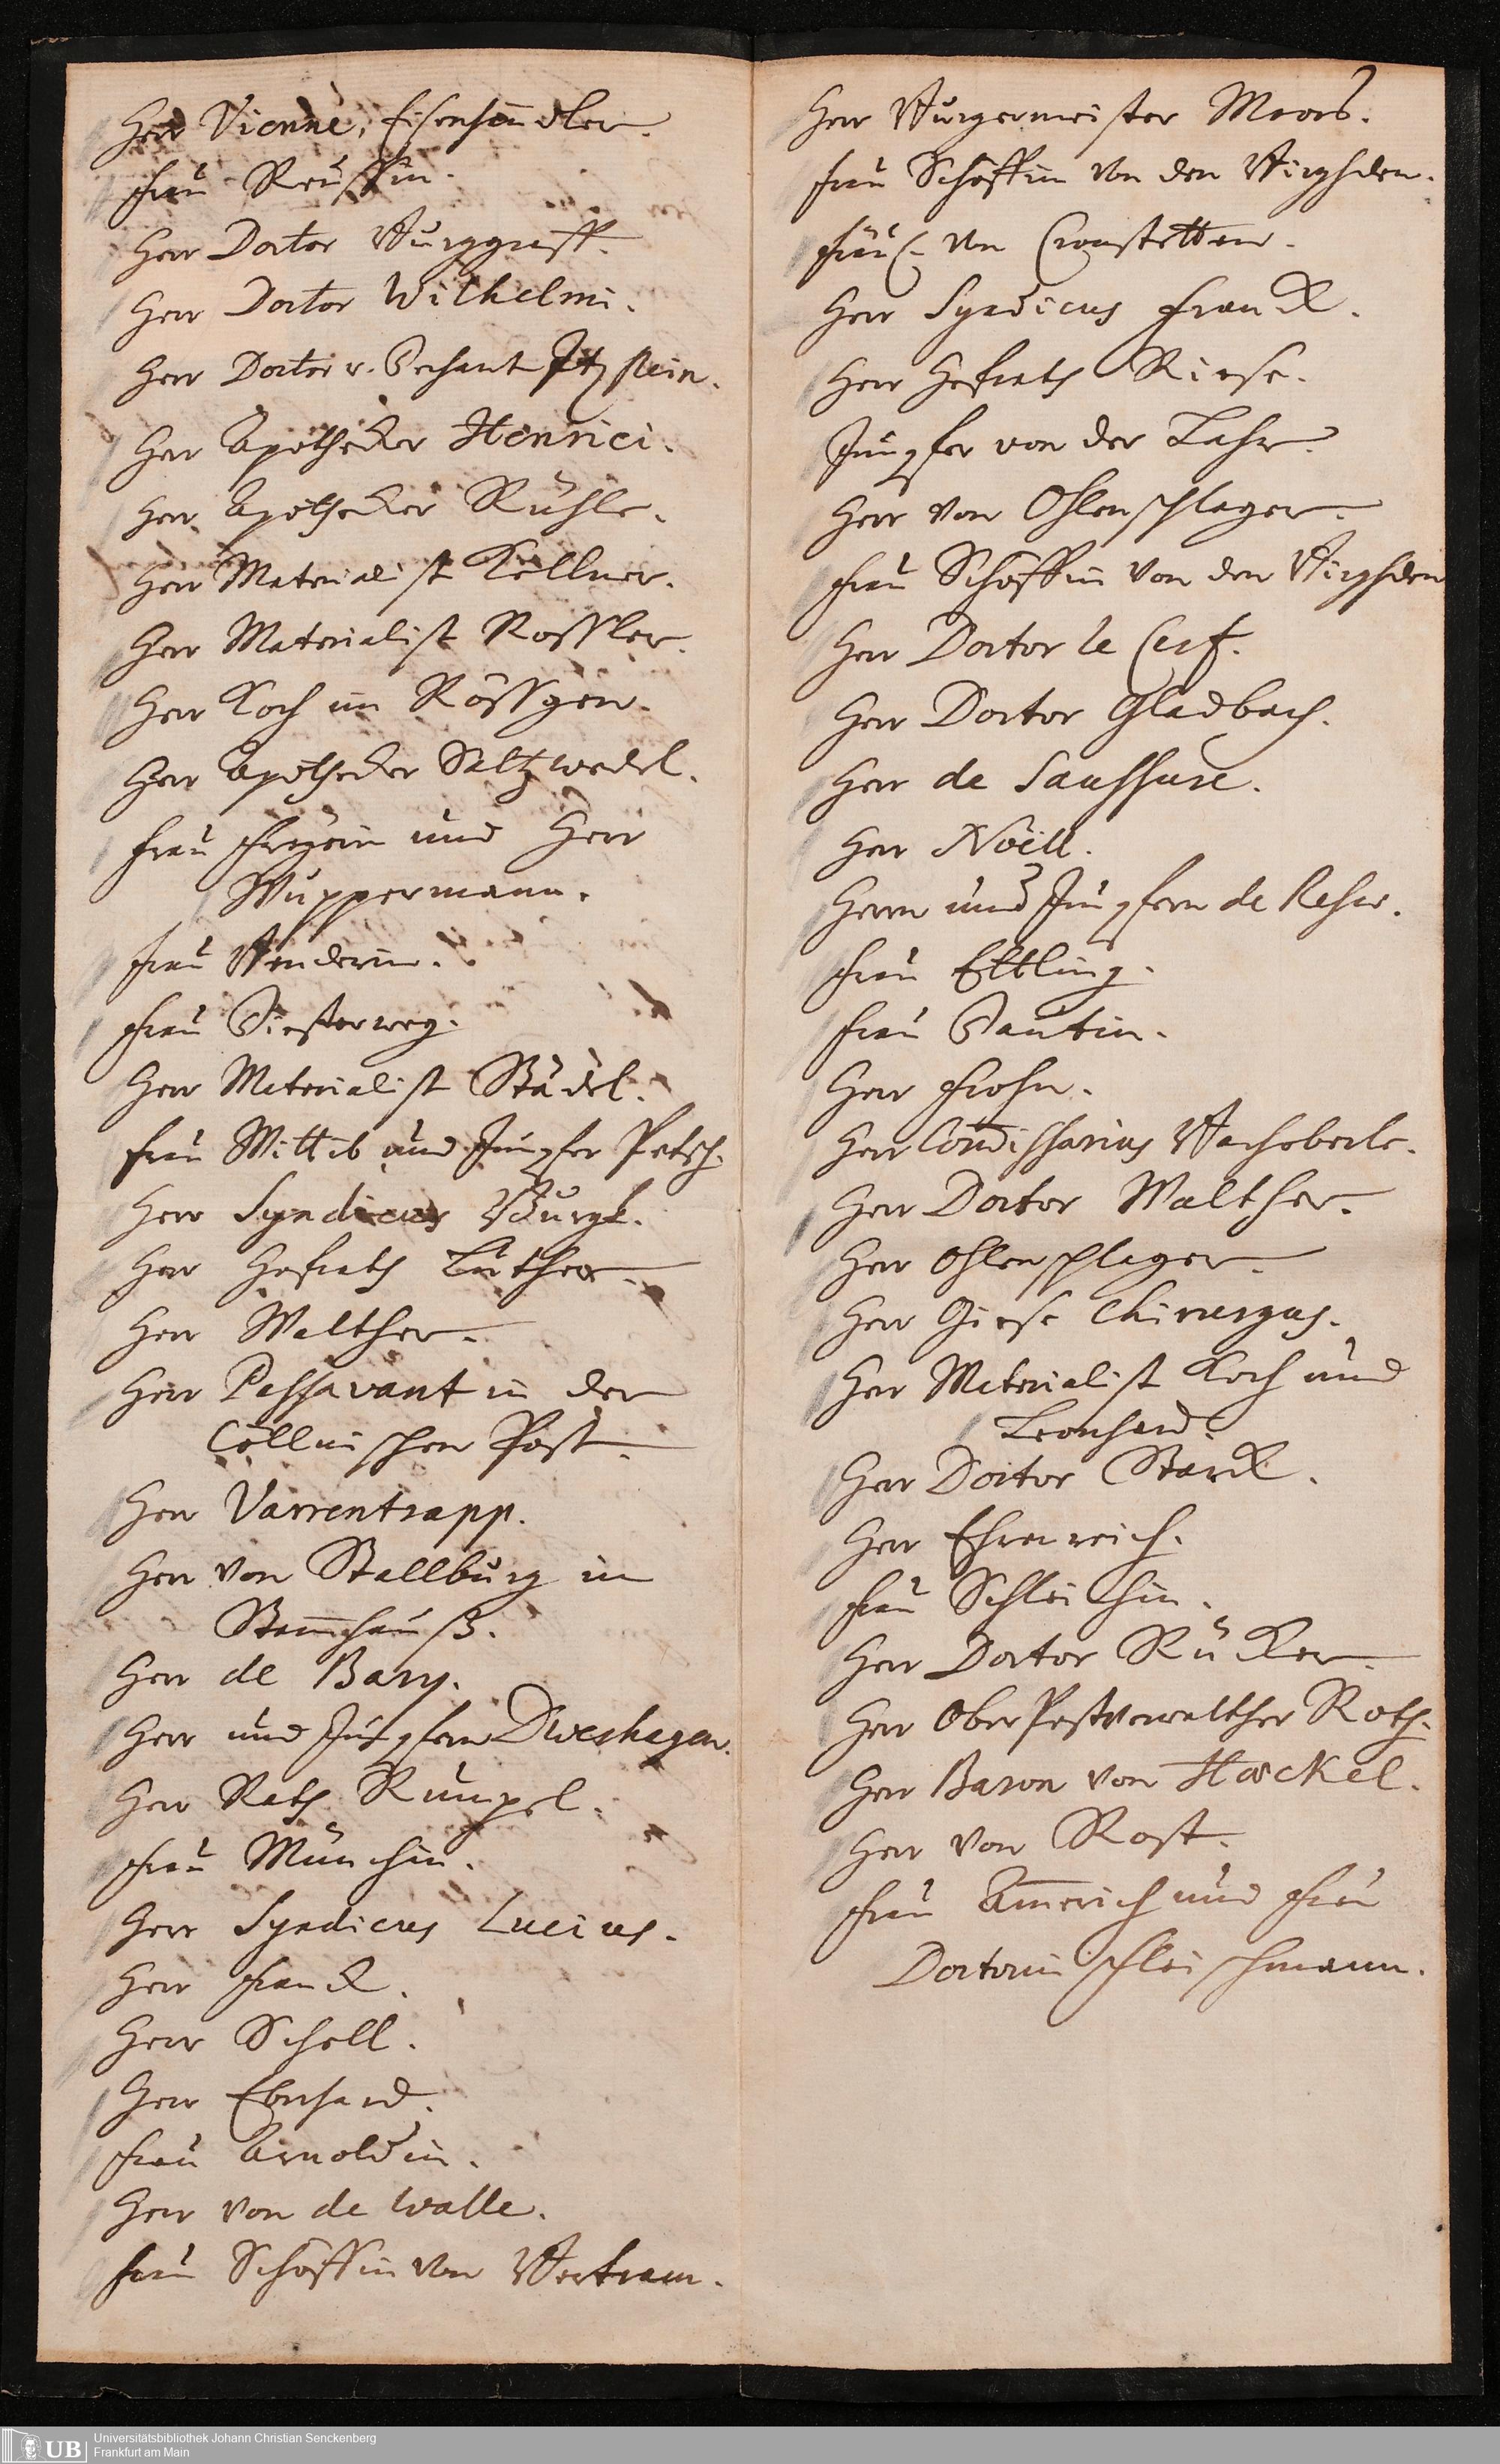 Herr Vienne, Eisenhändler.
Frau Reussin.
Herr Doctor Burggraff.
Herr Doctor Wilhelmi.
Herr Doctor v. Dechant Itzstein.
Herr Apothecker Henrici.
Herr Apothecker Rühle.
Herr Materialist Kellner.
Herr Materialist Rossler.
Herr Koch im Rössgen.
Herr Apothecker Saltzwedel.
Frau Freyein und Herr
Wuppermann.
Frau Benderin.
Frau Diesterweg.
Herr Materialist Städel.
Frau Wittib und Jungfer Petsch.
Herr Syndicus Burgk.
Herr Hofrath Luther.
Herr Walther.
Herr Passavant in der
Cöllnischen Post.
Herr Varrentrapp.
Herr von Stallburg im
Stammhauß.
Herr de Bary.
Herr und Jungfern Dweshagen.
Herr Rath Rumpel.
Frau Münchin.
Herr Syndicus Lucius.
Herr Franck.
Herr Scholl.
Herr Eberhard.
Frau Arnoldin.
Herr von de Walle.
Frau Schöffin von Bertram.
Herr Burgermeister Moors.
Frau Schöffin von den Birghden.
Frau C. von Cronstetten.
Herr Syndicus Franck.
Herr Hofrath Riese.
Jungfer von der Lahr.
Herr von Ohlenschlager.
Frau Schöffin von den Birghden
Herr Doctor le Cerf.
Herr Doctor Gladbach.
Herr de Saussure.
Herr Noëll.
Herrn und Jungfern de Rhew.
Frau Ettling.
Frau Pautin.
Herr Frohn.
Herr Commissarius Wacheberle.
Herr Doctor Walther.
Herr Ohlenschlager.
Herr Giese Chirurgus.
Herr Materialist Koch und
Leonhard.
Herr Doctor Starck.
Herr Ehrenreich.
Frau Schleichin.
Herr Doctor Rücker.
Herr Ober Postverwalther Roth.
Herr Baron von Haeckel.
Herr von Rost.
Frau Ammerich und Frau
Doctorin Fleischmann.
UB
Universitätsbibliothek Johann Christian Senckenberg
Frankfurt am Main